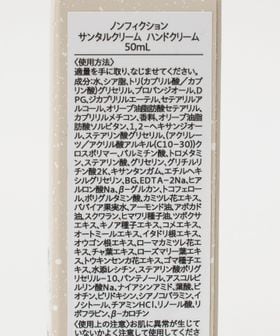 ノンフィクション
サンタルクリーム ハンドクリーム
50mL
〈使用方法〉
適量を手に取り、なじませてください。
成分:水、シア脂、トリ(カプリル酸/カプ
リン酸)グリセリル、プロパンジオール、D
PG、ジカプリリルエーテル、セテアリルア
ルコール、オリーブ油脂肪酸セテアリル、
カプリリルメチコン、香料、オリーブ油脂
肪酸ソルビタン、1,2-ヘキサンジオー
ル、ステアリン酸グリセリル、(アクリレー
ツ/アクリル酸アルキル(C10-30))ク
ロスポリマー、パルミチン酸、トロメタミ
ン、ステアリン酸、グリセリン、グリチルリ
チン酸2K、キサンタンガム、エチルヘキ
シルグリセリン、BG、EDTA-2Na、ヒア
ルロン酸Na、β-グルカン、トコフェロー
ル、ポリグルタミン酸、カミツレ花エキス、
パパイア果実水、アーモンド油、アボカド
油、スクワラン、ヒマワリ種子油、ツボクサ
エキス、キノア種子エキス、コメエキス、
オートミールエキス、イタドリ根エキス、
オウゴン根エキス、ローマカミツレ花エ
キス、チャ葉エキス、ローズマリー葉エキ
ス、トウキンセンカ花エキス、ゴマ種子エ
キス、水添レシチン、ステアリン酸ポリグ
リセリル-10、パンテノール、アスコルビ
ルリン酸Na、ナイアシンアミド、葉酸、ビ
オチン、ピリドキシン、シアノコバラミン、イ
ノシトール、チアミンHCl、リノール酸、リ
ボフラビン、β-カロチン
〈使用上の注意〉お肌に異常が生じて